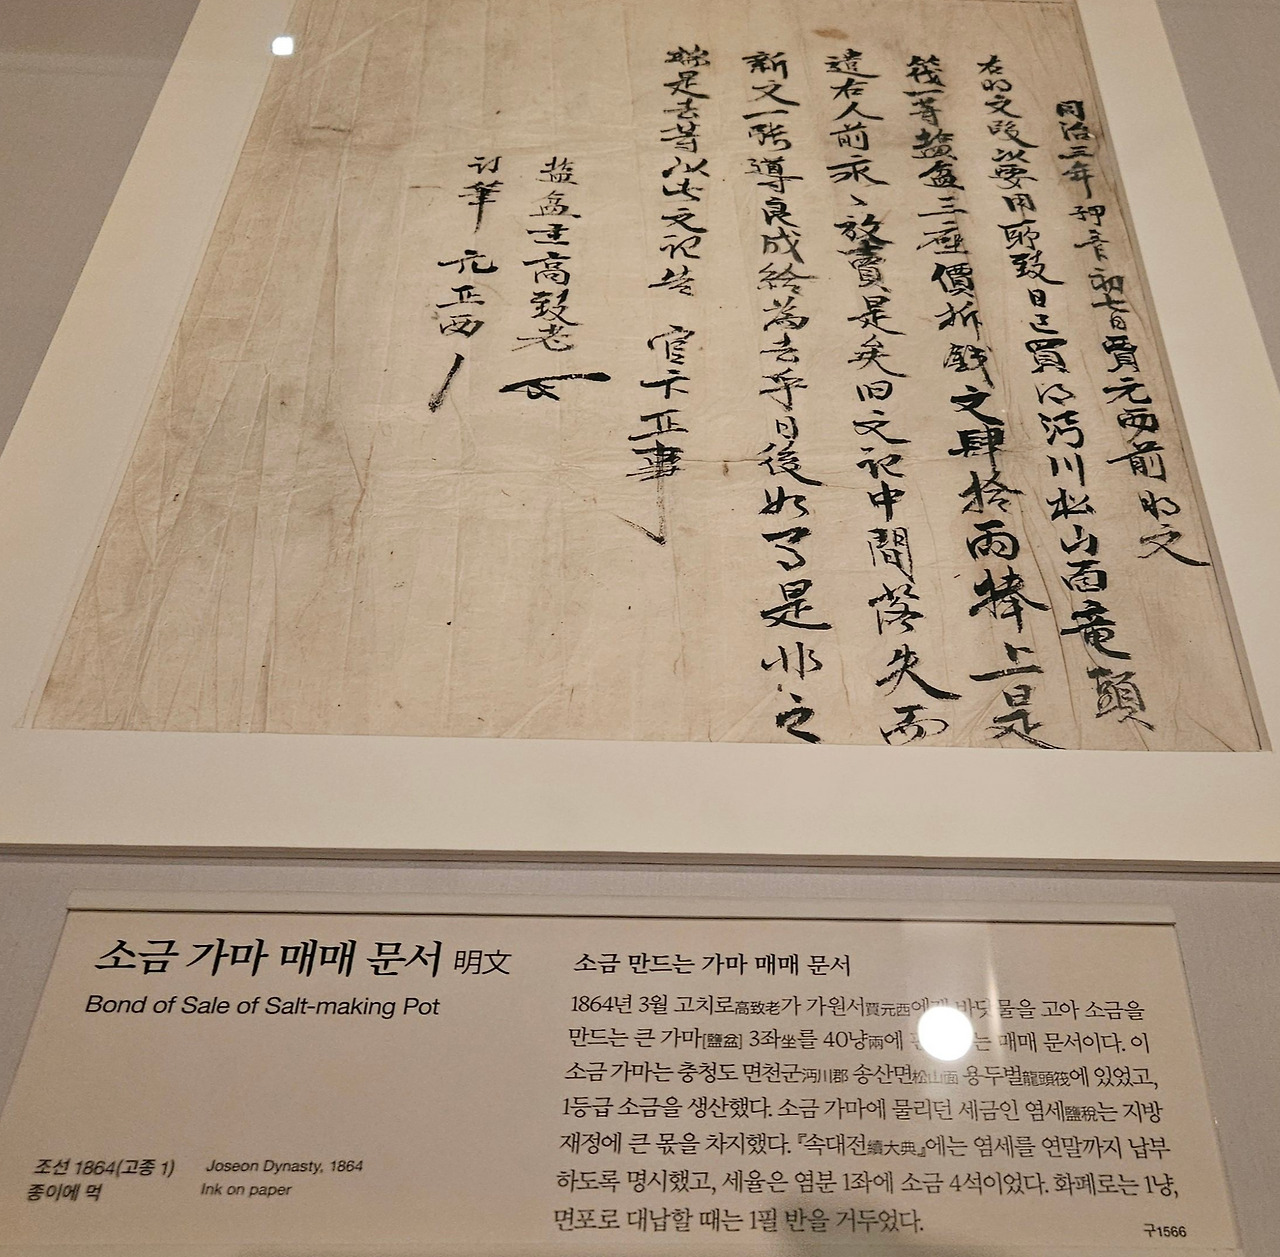 同治三年 初七日賈元西前明文
右明文段以要用所致自己買得沔川松山面竜頭
筏一等盐盆三座價折錢文肆拾兩捧上是
遣右人前永〻放賣是矣旧文記中間落失而
新文一張導良成給為去乎日後如有是非之
端是去等以此文記告官卞正事
盐盆主高致老
訂筆 元正西
소금 가마 매매 문서 明文
Bond of Sale of Salt-making Pot
조선 1864(고종 1)
종이에 먹
Joseon Dynasty, 1864
Ink on paper
소금 만드는 가마 매매 문서
1864년 3월 고치로高致老가 가원서賈元西에게 바닷물을 고아 소금을
만드는 큰 가마[鹽盆] 3좌坐를 40냥兩에 는 매매 문서이다. 이
소금 가마는 충청도 면천군沔川郡 송산면松山面 용두벌龍頭筏에 있었고,
1등급 소금을 생산했다. 소금 가마에 물리던 세금인 염세鹽稅는 지방
재정에 큰 몫을 차지했다. 『속대전續大典』에는 염세를 연말까지 납부
하도록 명시했고, 세율은 염분 1좌에 소금 4석이었다. 화폐로는 1냥,
면포로 대납할 때는 1필 반을 거두었다.
구1566